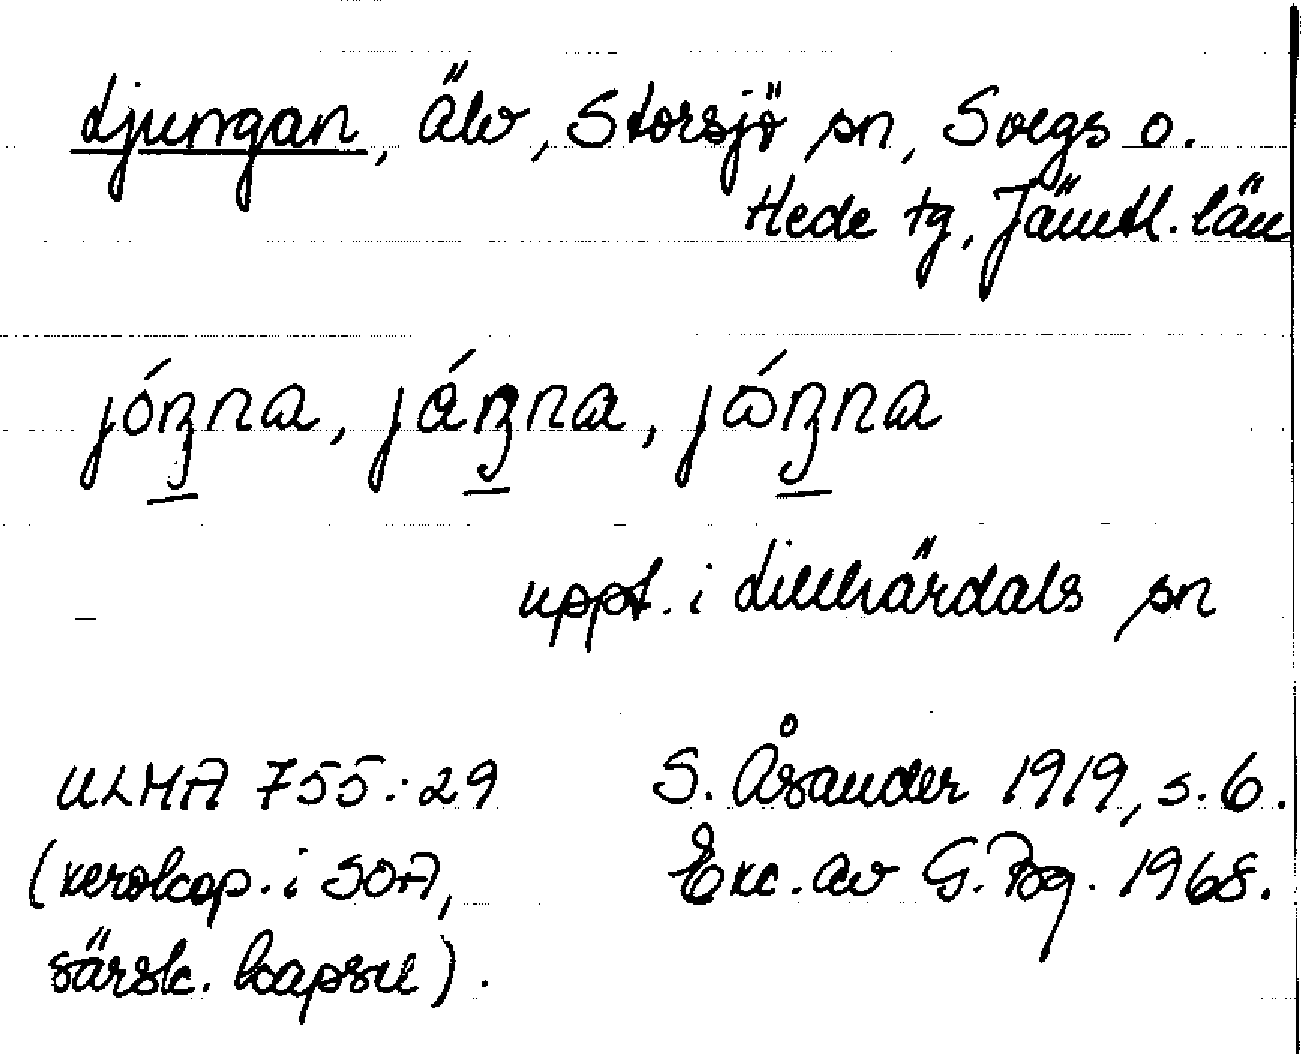 Ljungan, älv, Storsjö sn, Svegs o.
Hede tg, Jämtl. län
jóŋna, jáŋna, jɷ́ŋna
uppt. i Lillhärdals sn
ULMA 755:29
(xerokop. i SOA,
särsk. kapsel).
S. Åsander 1919, s. 6.
Exc. av G. Bg. 1968.